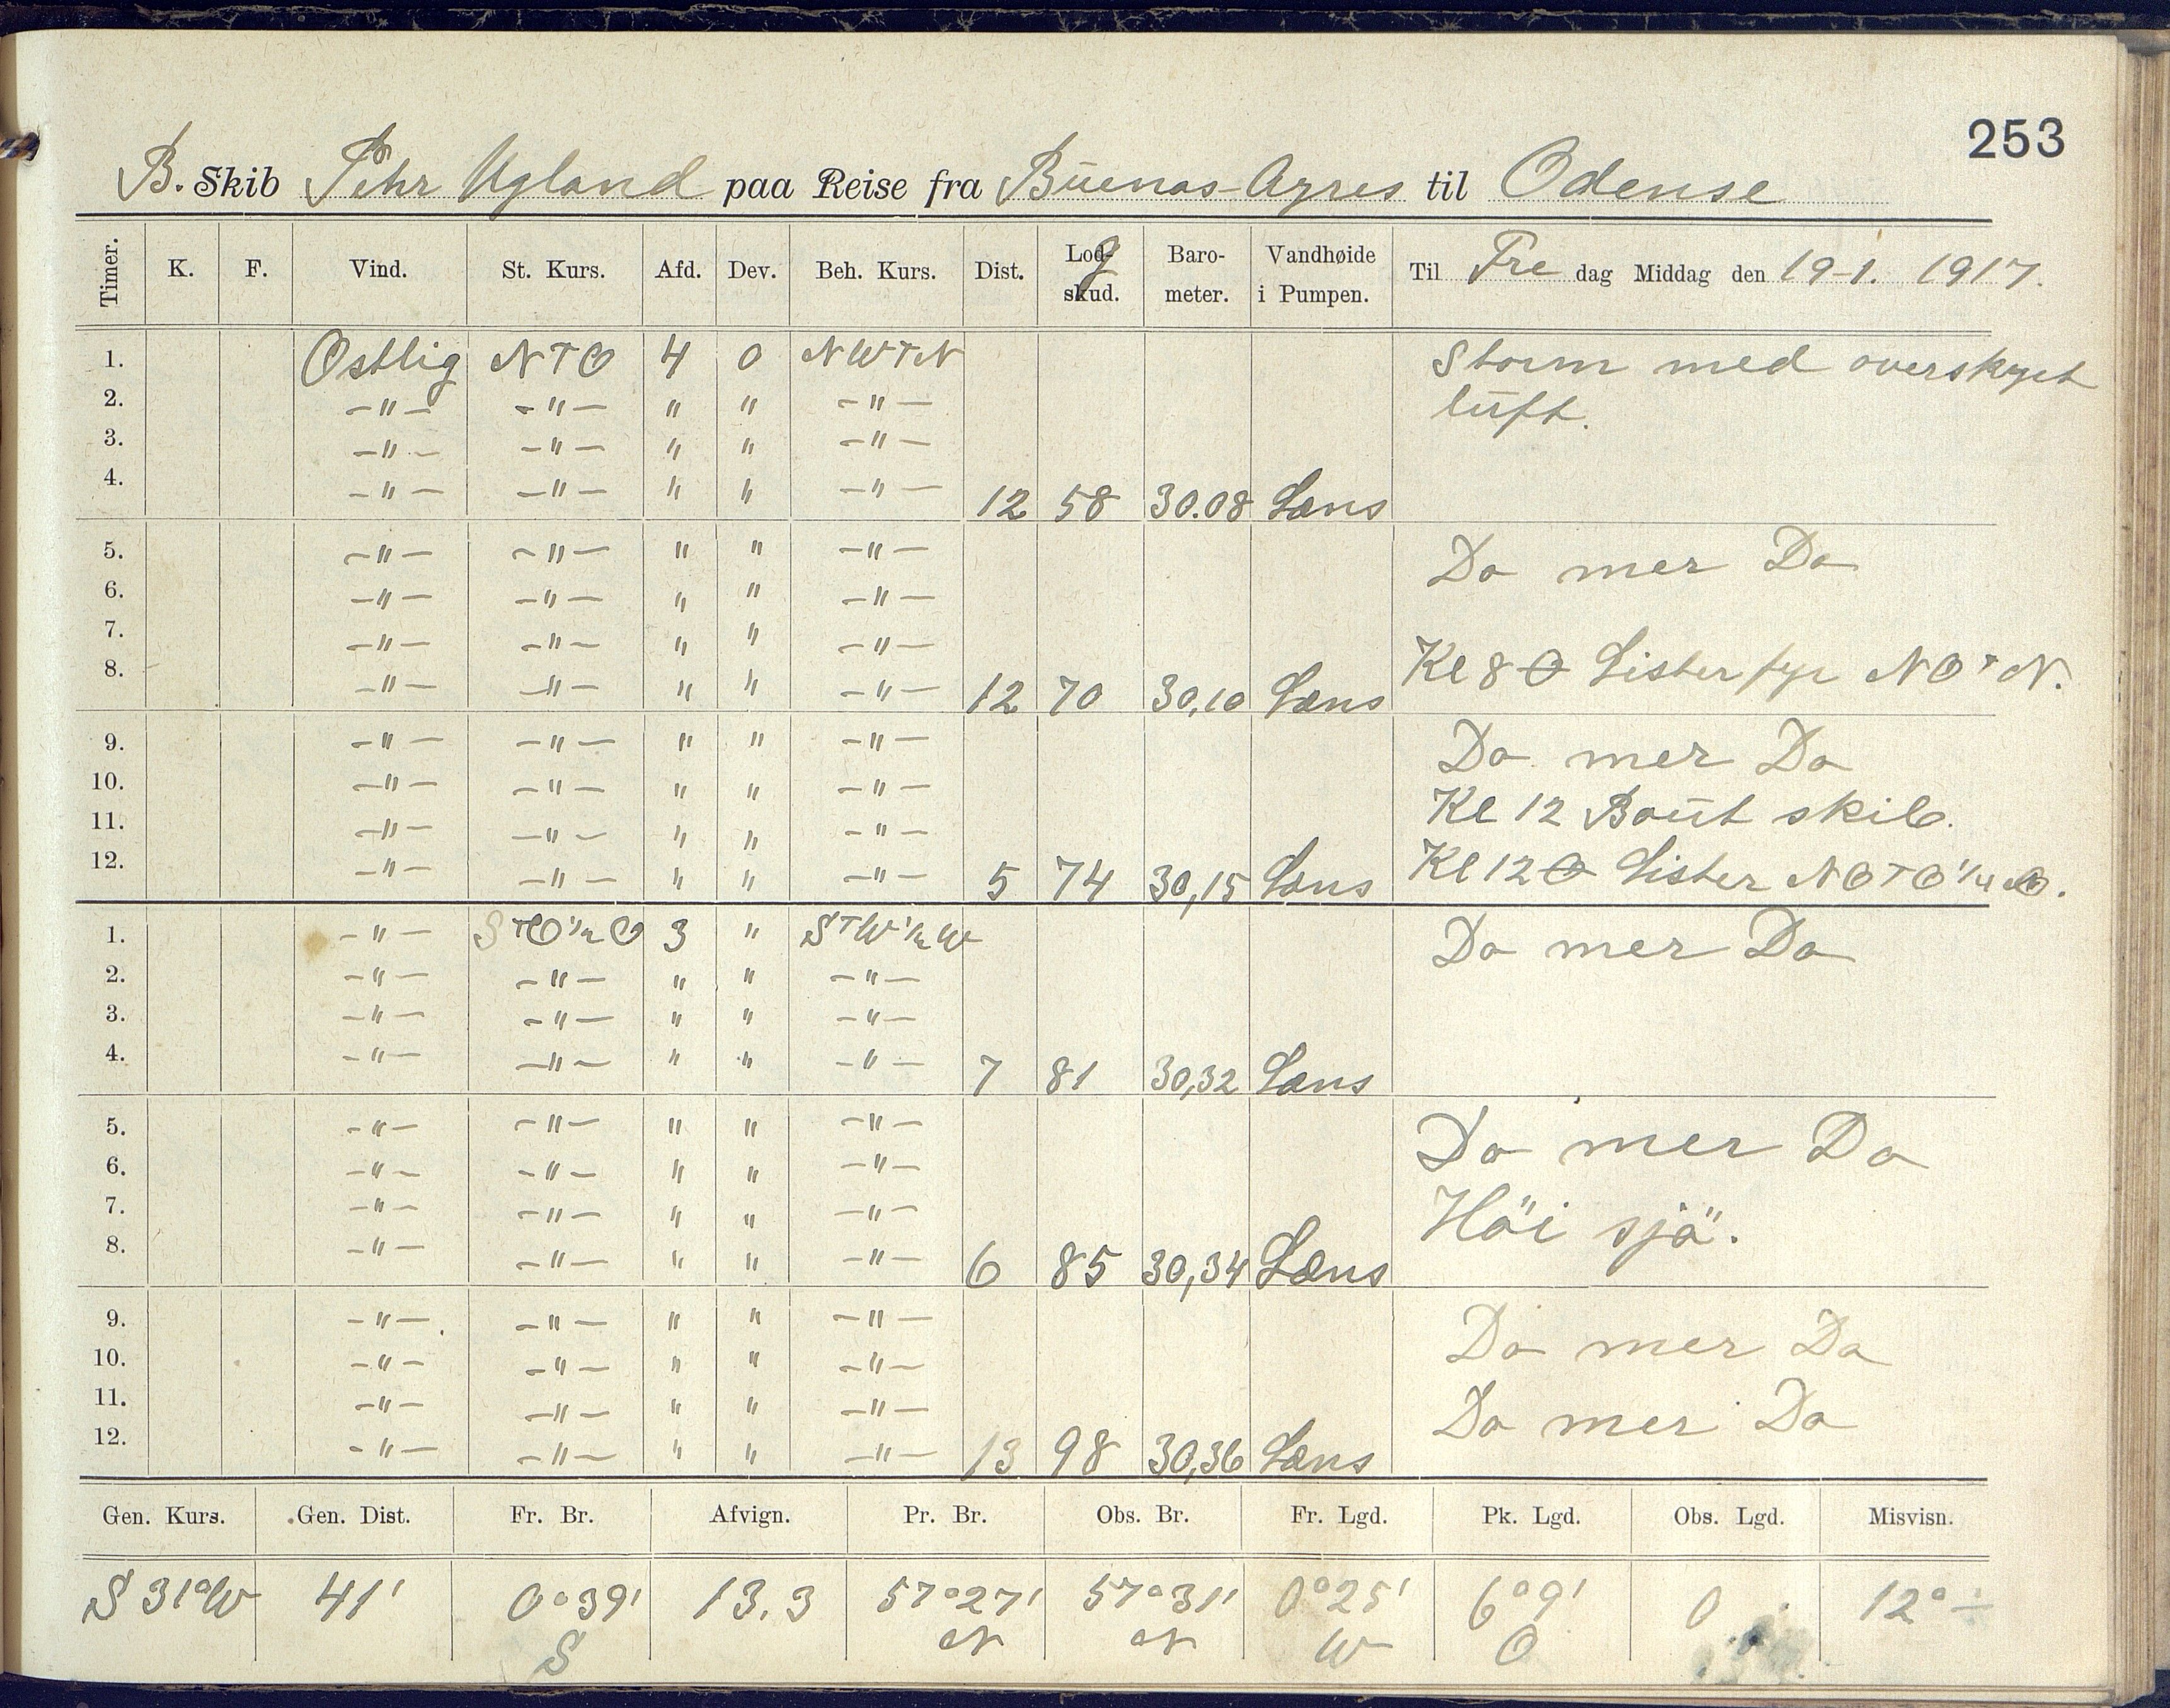 253
B. Skib Pehr Ugland paa Reise fra Buenas-Ayres til Odense
Timer. K. F. Vind. St. Kurs. Afd. Dev. Beh. Kurs. Dist. Lodg skud. Barometer. Vandhøide i Pumpen. Til Fre dag Middag den 19-1. 1917.
1. Ostlig NTO 4 0 NWTN Storm med overskyet
2. -"- -"- " " -"- luft.
3. -"- -"- " " -"-
4. -"- -"- " " -"- 12 58 30.08 Læns
5. -"- -"- " " -"- Do mer Do
6. -"- -"- " " -"-
7. -"- -"- " " -"-
8. -"- -"- " " -"- 12 70 30,10 Læns Kl 8 O Lister fyr NOTN.
9. -"- -"- " " -"- Do mer Do
10. -"- -"- " " -"- Kl 12 Bout skib.
11. -"- -"- " " -"-
12. -"- -"- " " -"- 5 74 30,15 Læns Kl 12 O Lister NOTO 1/4
1. -"- STO 1/2 O 3 " STW 1/2 W Do mer Do
2. -"- -"- " " -"-
3. -"- -"- " " -"-
4. -"- -"- " " -"- 7 81 30,32 Læns
5. -"- -"- " " -"- Do mer Do
6. -"- -"- " " -"-
7. -"- -"- " " -"- Höi sjö.
8. -"- -"- " " -"- 6 85 30,34 Læns
9. -"- -"- " " -"- Do mer Do
10. -"- -"- " " -"-
11. -"- -"- " " -"- Do mer Do
12. -"- -"- " " -"- 13 98 30,36 Læns
Gen. Kurs. Gen. Dist. Fr. Br. Afvign. Pr. Br. Obs. Br. Fr. Lgd. Pk. Lgd. Obs. Lgd. Misvisn.
S 31° W 41' 0°39' 13,3 57°27' 57°31' 0°25' 6°9' 0 12° ÷
S N N W O